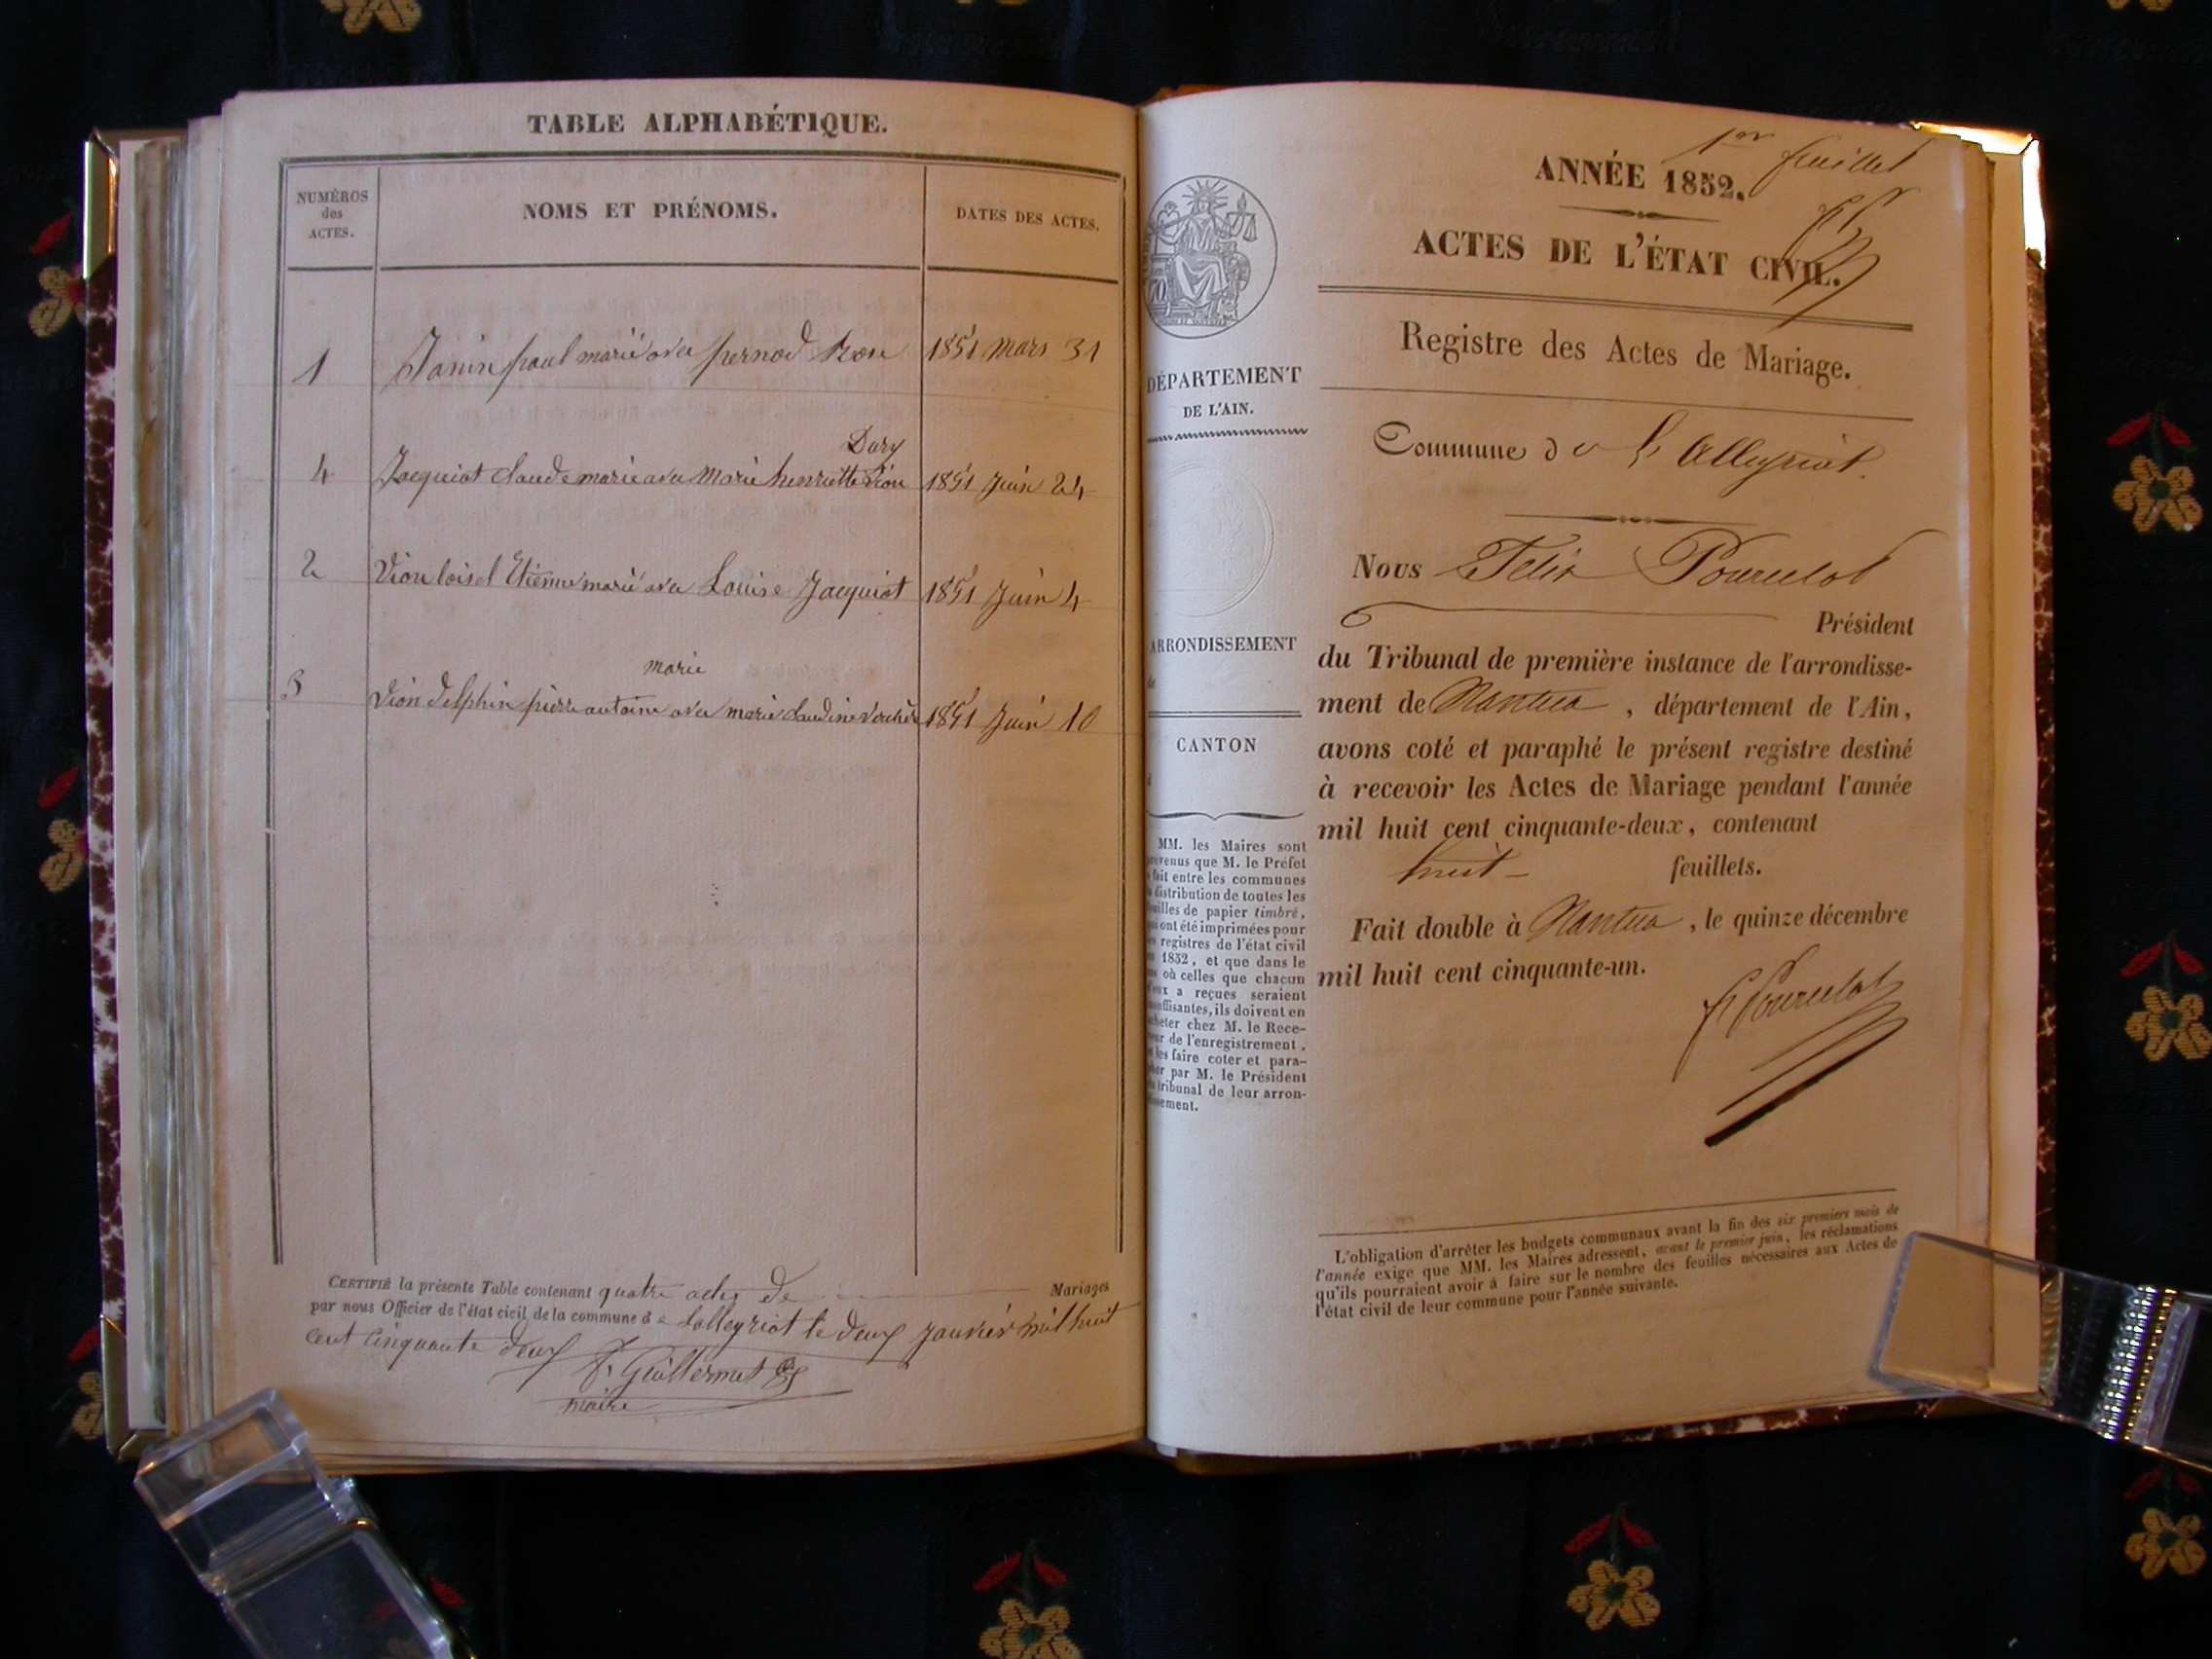 TABLE ALPHABÉTIQUE.
NUMÉROS
des
ACTES.
NOMS ET PRÉNOMS.
DATES DES ACTES.
1 Janin paul marié avec pernod 1851 Mars 31
Dury
4 Jacquiot claude marie avec Marie henriette 1851 Juin 24
2 Vion loisel Etienne marié avec Louise Jacquiot 1851 Juin 4
marie
3 Vion delphin pierre antoine avec marie claudine 1851 Juin 10
CERTIFIÉ la présente Table contenant quatre actes de Mariages
par nous Officier de l'état civil de la commune de Lalleyriat le deux janvier mil huit
cent cinquante deux
F. Guillermet
maire
1er feuillet
ANNÉE 1852.
ACTES DE L'ÉTAT CIVIL.
Registre des Actes de Mariage.
DÉPARTEMENT
DE L'AIN.
Commune de L'Alleyriat.
Nous Félix Pourcelot
Président
ARRONDISSEMENT
de
du Tribunal de première instance de l'arrondisse-
ment de Nantua, département de l'Ain,
CANTON
d
avons coté et paraphé le présent registre destiné
à recevoir les Actes de Mariage pendant l'année
mil huit cent cinquante-deux, contenant
huit feuillets.
Fait double à Nantua, le quinze décembre
mil huit cent cinquante-un.
F Pourcelot
MM. les Maires sont
que M. le Préfet
fait entre les communes
distribution de toutes les
de papier timbré,
ont été imprimées pour
registres de l'état civil
1852, et que dans le
où celles que chacun
a reçues seraient
ils doivent en
chez M. le Rece-
de l'enregistrement,
les faire coter et para-
par M. le Président
tribunal de leur arron-
L'obligation d'arrêter les budgets communaux avant la fin des six premiers mois de
l'année exige que MM. les Maires adressent, avant le premier juin, les réclamations
qu'ils pourraient avoir à faire sur le nombre des feuilles nécessaires aux Actes de
l'état civil de leur commune pour l'année suivante.